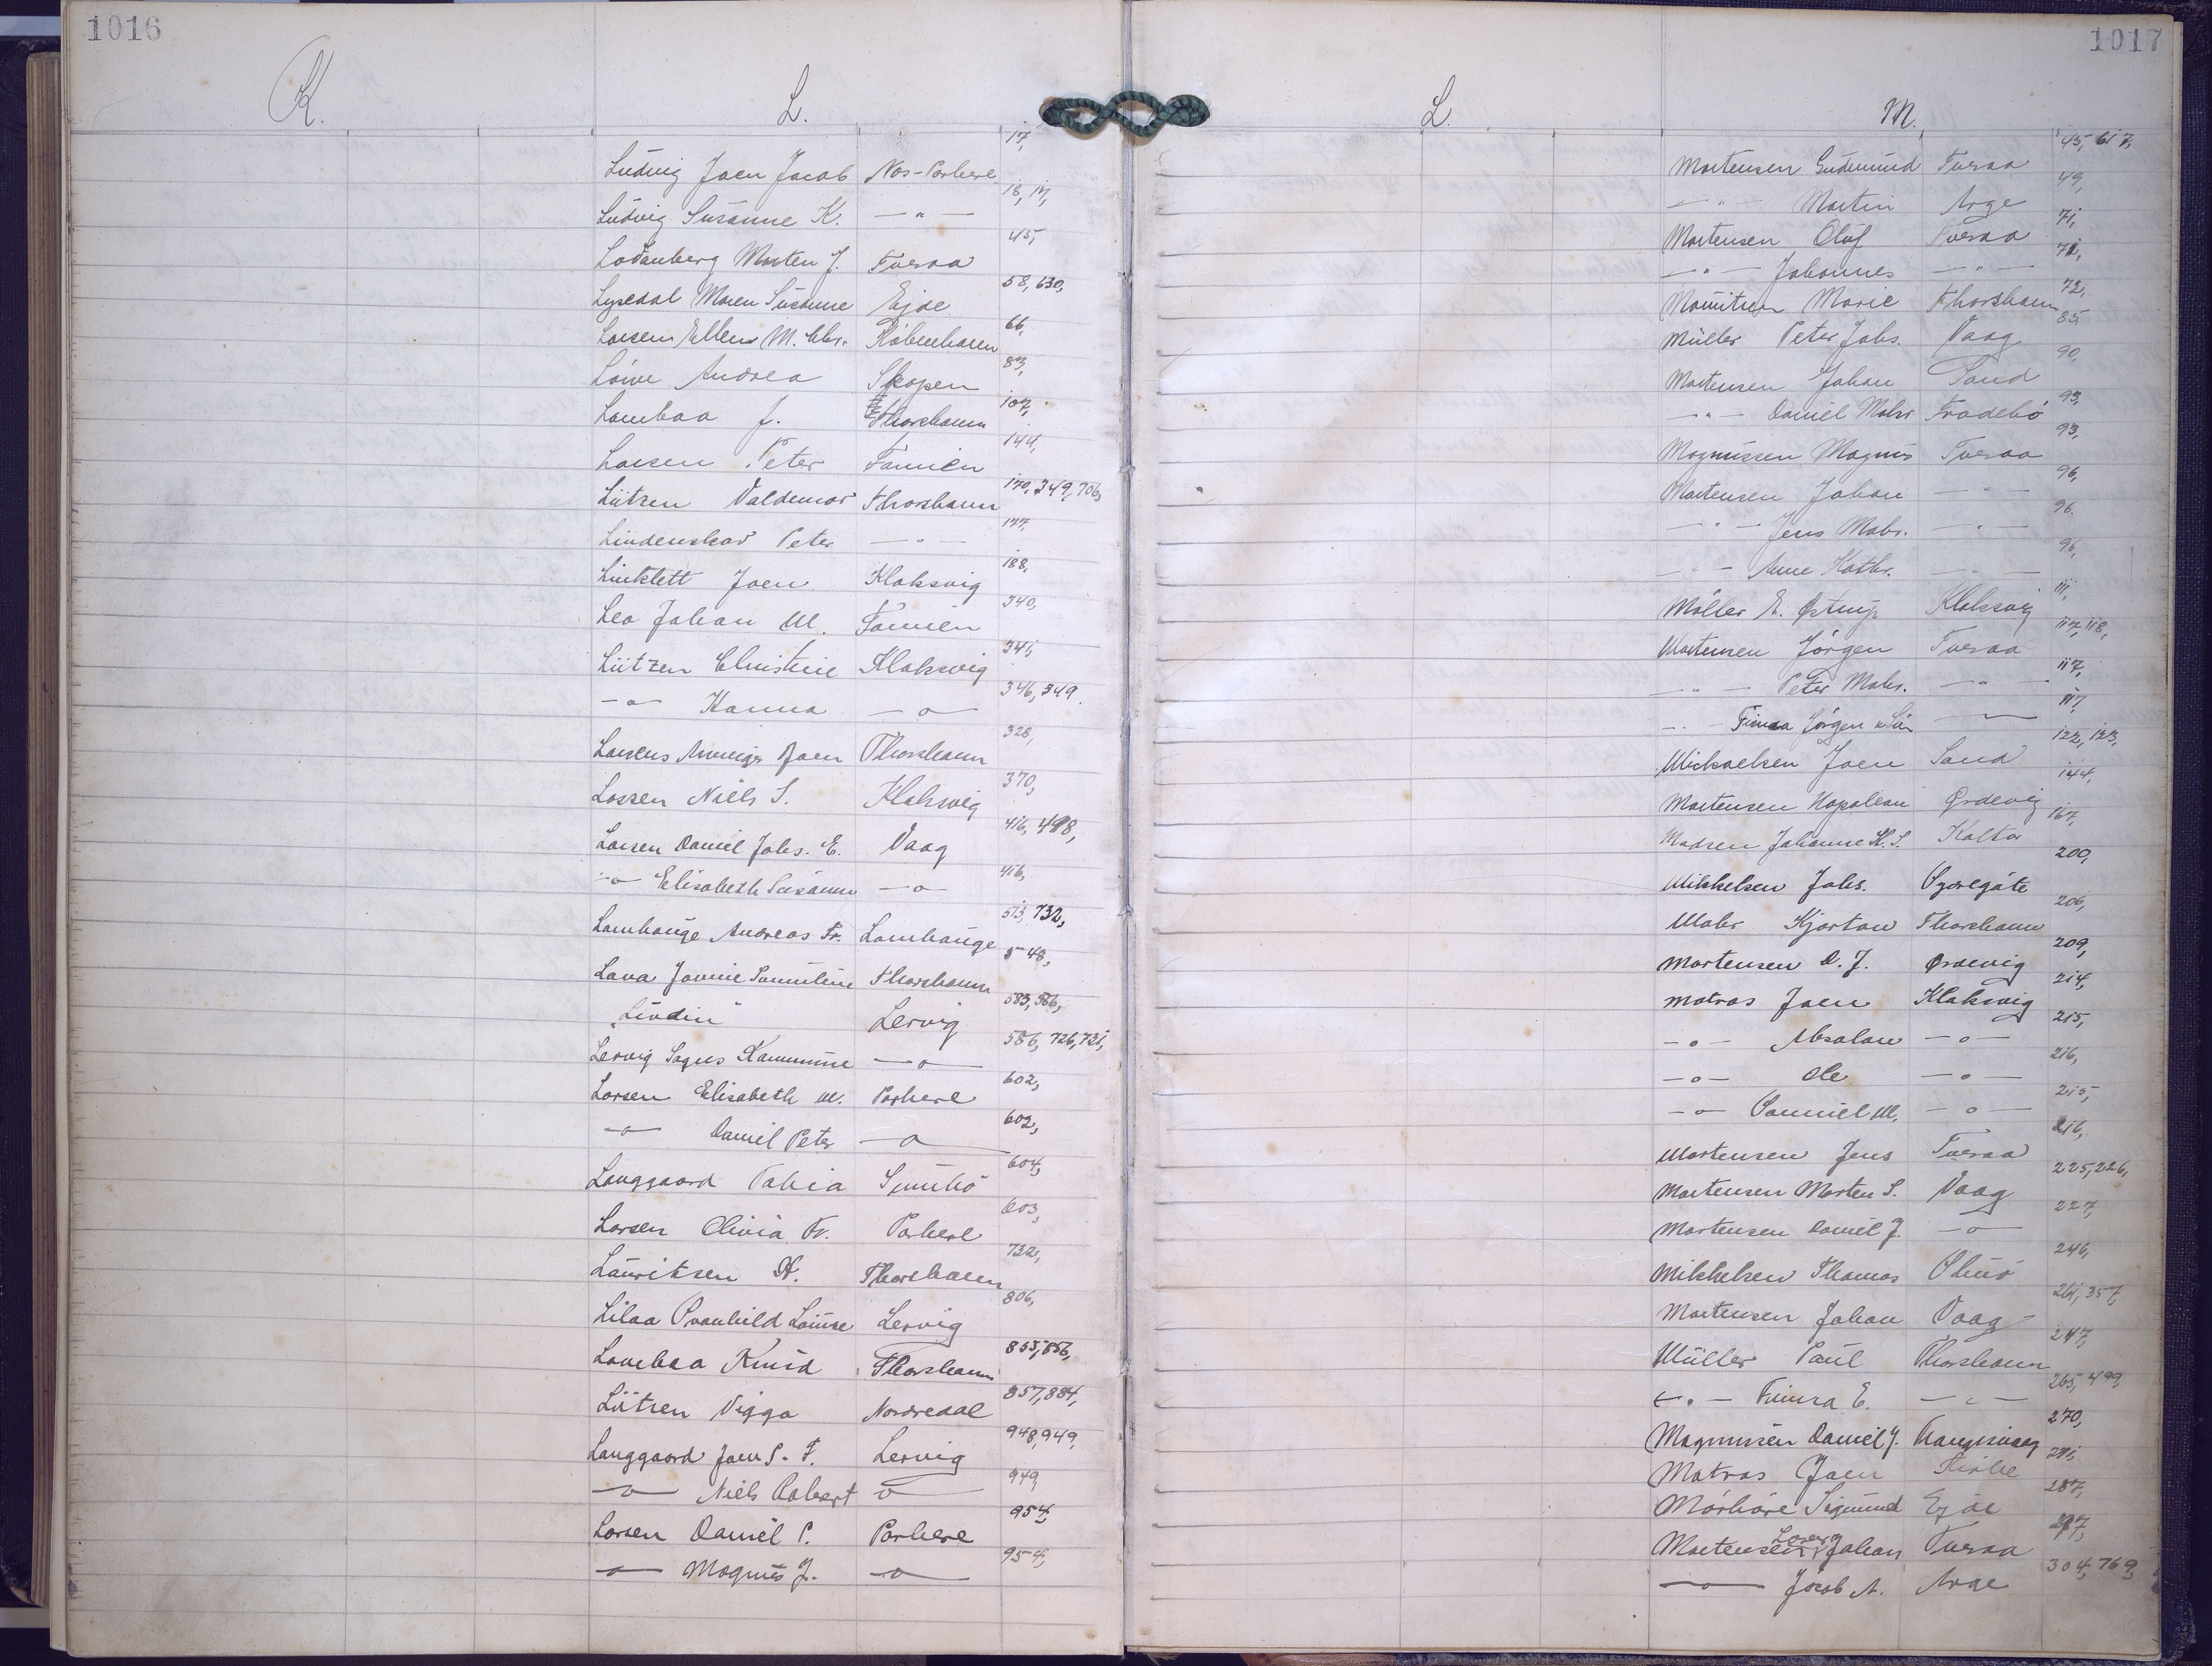 1016
K.
L.
Ludvig Joen Jacob Nos-Porkere 17,
Ludvig Susanne K. — " — 18, 17,
Morten J. Tveraa 45,
Lysedal Maren Susanne Ejde 58, 630,
Larsen Ellen M. Chr. København 66,
Andrea Skopen 83,
Lambaa J. Thorshavn 107,
Larsen Peter Famien 144,
Lützen Valdemar Thorshavn 170, 349, 706,
Lindenskov Peter — " — 177,
Linklett Joen Klaksvig 188,
Leo Johan M. Famien 340,
Lützen Christine Klaksvig 341,
—o— Hanna —o— 346, 349.
Joen Thorshavn 328,
Lassen Niels S. Klaksvig 370,
Larsen Daniel Johs. E. Vaag 416, 498,
—o— Elisabeth Susanne —o— 416,
Lamhauge Andreas Fr. Lamhauge 513, 732,
Lava Jovine Samuline Thorshavn 548,
Lervig 583, 586,
Lervig Sogns Kommune —o— 586, 726, 731,
Larsen Elisabeth M. Porkere 602,
—o— Daniel Peter —o— 602,
Langgaard Tobia Sumbö 604,
Larsen Olivia Fr. Porkere 603,
Lauritsen H. Thorshavn 732,
Lilaa Svanhild Louise Lervig 806,
Lambaa Knud Thorshavn 855, 856,
Lützen Viggo Nordredal 857, 884,
Langgaard Joen S. F. Lervig 948, 949,
—o— Niels Robert —o— 949,
Larsen Daniel P. Porkere 954,
—o— Magnus J. —o— 954,
1017
L.
M.
Mortensen Gudmund Tveraa 45, 617,
— " — Martin Arge 49,
Mortensen Oluf Tveraa 71,
— " — Johannes — " — 71,
Mouritsen Marie Thorshavn 72,
Müller Peter Johs. Vaag 85,
Mortensen Johan Sand 90,
— " — Daniel Mohr Frodebö 93,
Magnussen Magnus Tveraa 93,
Mortensen Johan — " — 96,
— " — Jens Mohr. — " — 96.
— " — Anne Kathr. — " — 96,
Möller E. Østrup Klaksvig 111,
Mortensen Jörgen Tveraa 117, 118,
— " — Peter Mohr. — " — 117,
— " — Firma Jörgen & Sön — " — 117,
Michaelsen Joen Sand 122, 123,
Mortensen Napoleon Ördevig 144,
Madsen Johanne K. S. Kolter 167,
Mikkelsen Johs. Syoregöte 200,
Mohr Kjartan Thorshavn 206,
Mortensen D. J. Ördevig 209,
Matras Joen Klaksvig 214,
—o— Absalon —o— 215,
—o— Ole —o— 216,
—o— Samuel M. —o— 215,
Mortensen Jens Tveraa 216,
Mortensen Morten S. Vaag 225, 226,
Mortensen Daniel J. —o— 227,
Mikkelsen Thomas 246,
Mortensen Johan Vaag 261, 357,
Müller Paul Thorshavn 247,
— " — Firma E. — " — 265, 499,
Magnussen Daniel J. Trangisvaag 270,
Matras Joen Kirke 271,
Mörköre Sigmund Ejde 287,
Mortensen Johan Tveraa 297,
—o— Jacob A. Arge 304, 769,